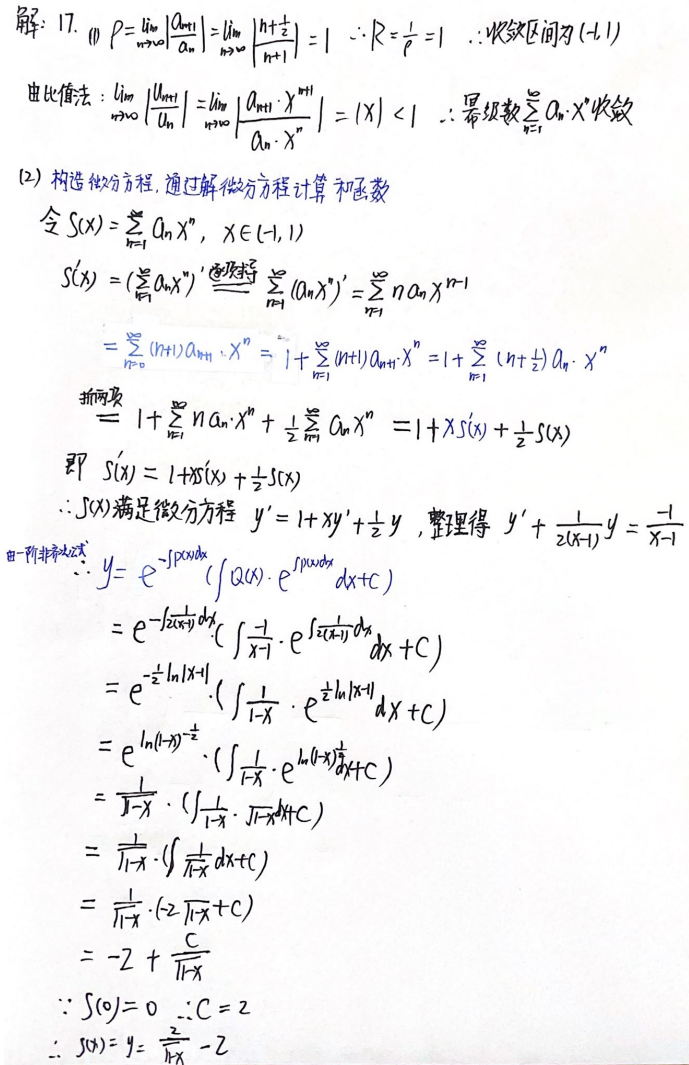 解: 17. (1) ρ = lim_{n→∞} |a_{n+1}/a_n| = lim_{n→∞} |(n+1/2)/(n+1)| = 1 ∴ R = 1/ρ = 1 ∴ 收敛区间为(-1,1)
由比值法: lim_{n→∞} |u_{n+1}/u_n| = lim_{n→∞} |(a_{n+1}·x^{n+1})/(a_n·x^n)| = |x| < 1 ∴ 幂级数 ∑_{n=1}^∞ a_n·x^n 收敛
(2) 构造微分方程, 通过解微分方程计算和函数
令 S(x) = ∑_{n=1}^∞ a_n x^n, x∈(-1,1)
S'(x) = (∑_{n=1}^∞ a_n x^n)' 逐项求导 = ∑_{n=1}^∞ (a_n x^n)' = ∑_{n=1}^∞ n a_n x^{n-1}
= ∑_{n=0}^∞ (n+1) a_{n+1}·x^n = 1 + ∑_{n=1}^∞ (n+1) a_{n+1}·x^n = 1 + ∑_{n=1}^∞ (n+1/2) a_n·x^n
拆两项 = 1 + ∑_{n=1}^∞ n a_n·x^n + 1/2 ∑_{n=1}^∞ a_n x^n = 1 + xS'(x) + 1/2 S(x)
即 S'(x) = 1 + xS'(x) + 1/2 S(x)
∴ S(x)满足微分方程 y' = 1 + xy' + 1/2 y, 整理得 y' + 1/(2(x-1)) y = -1/(x-1)
由一阶非齐次公式 ∴ y = e^{-∫p(x)dx} (∫Q(x)·e^{∫p(x)dx} dx + C)
= e^{-∫1/(2(x-1)) dx}·(∫ -1/(x-1) · e^{∫1/(2(x-1)) dx} dx + C)
= e^{-1/2 ln|x-1|}·(∫ 1/(1-x) · e^{1/2 ln|x-1|} dx + C)
= e^{ln(1-x)^{-1/2}}·(∫ 1/(1-x) · e^{ln(1-x)^{1/2}} dx + C)
= 1/√(1-x) · (∫ 1/(1-x) · √(1-x) dx + C)
= 1/√(1-x) · (∫ 1/√(1-x) dx + C)
= 1/√(1-x) · (-2√(1-x) + C)
= -2 + C/√(1-x)
∵ S(0) = 0 ∴ C = 2
∴ S(x) = y = 2/√(1-x) - 2